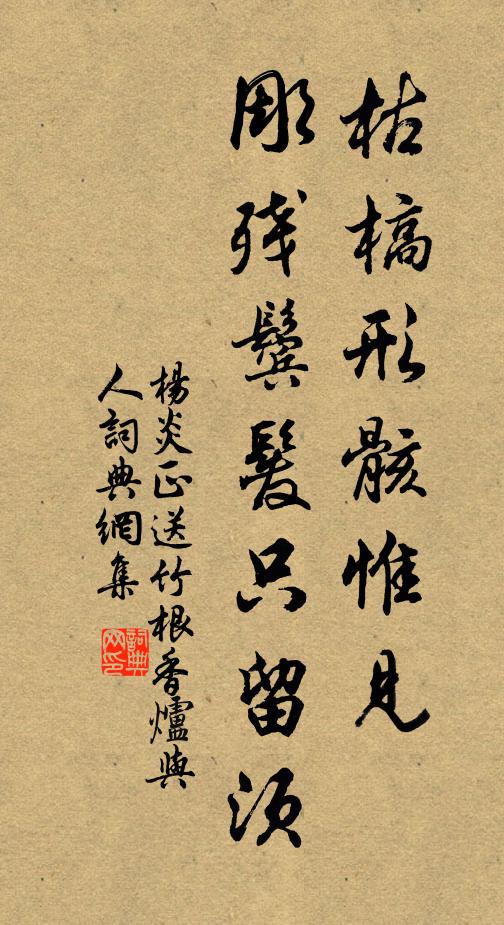 枯槁形骸惟見
彫残鬢髮只留須
楊炎正送竹根香爐與
人詞典網集
詞典网印